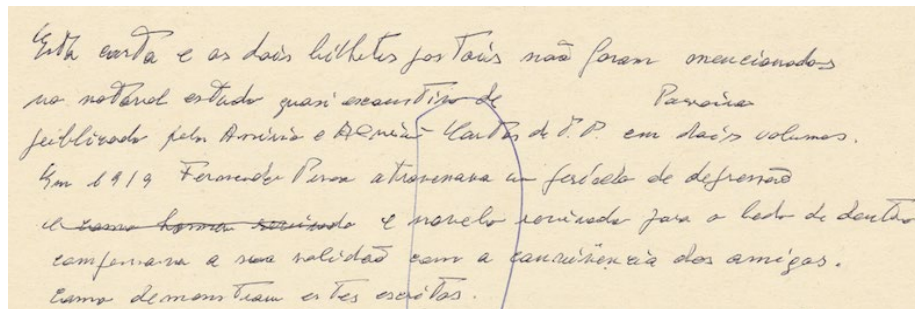 Esta carta e os dois bilhetes postais não foram mencionados
no notável estudo quasi exaustivo de
publicado pela Assírio e Alvim Cartas de F.P. em dois volumes.
Em 1919 Fernando Pessoa atravessava um período de depressão
e como homem revirado e novelo revirado para o lado de dentro
compensava a sua solidão com a convivência dos amigos.
como demonstram estes escritos.